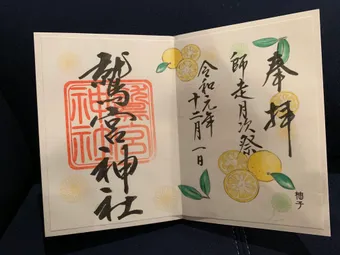 奉拝
師走月次祭
令和元年
十二月一日
柚子
鷲宮神社
鷲宮
神社